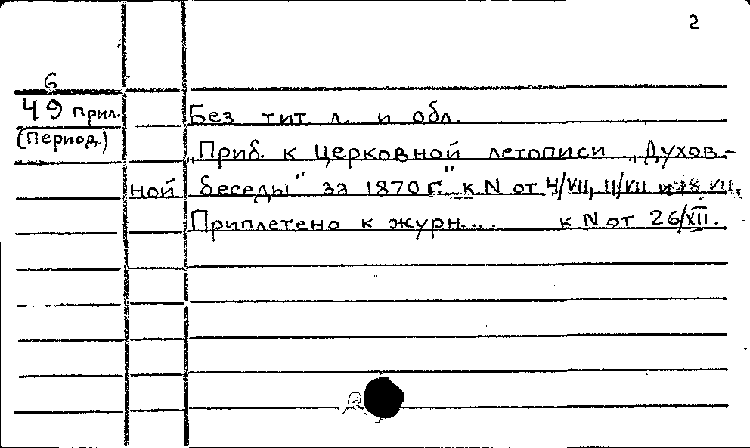 2
6
49 прил.
(Период.)
Без тит. л. и обл.
„Приб. к Церковной летописи „Духов-
ной беседы" за 1870 г." к N от 4/VII, 11/VII и 18.VII,
Приплетено к журн... к N от 26/XII.